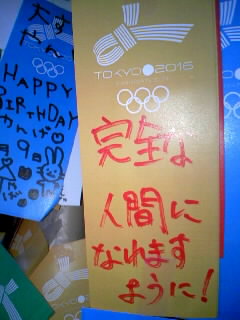 大
やん!
HAPPY
BIRTHDAY
月9日
TOKYO 2016
完全な
人間に
なれます
ように!